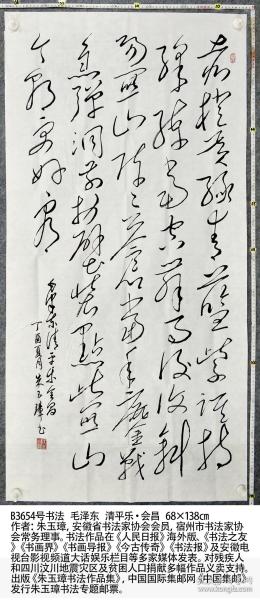 赤橙黄绿青蓝紫谁持
彩练当空舞雨后复斜
阳關山阵阵苍当年鏖戰
急彈洞前村壁装點此關山
今朝更好看
毛泽东清平乐会昌
丁酉夏月朱玉璋书
B3654号书法 毛泽东 清平乐·会昌 68×138cm
作者:朱玉璋,安徽省书法家协会会员,宿州市书法家协
会常务理事。书法作品在《人民日报》海外版、《书法之友
》《书画界》《书画导报》《今古传奇》《书法报》及安徽电
视台影视频道大话娱乐栏目等多家媒体发表。对残疾人
和四川汶川地震灾区及贫困人口捐献多幅作品义卖支持。
出版《朱玉璋书法作品集》,中国国际集邮网《中国集邮》
发行朱玉璋书法专题邮票。